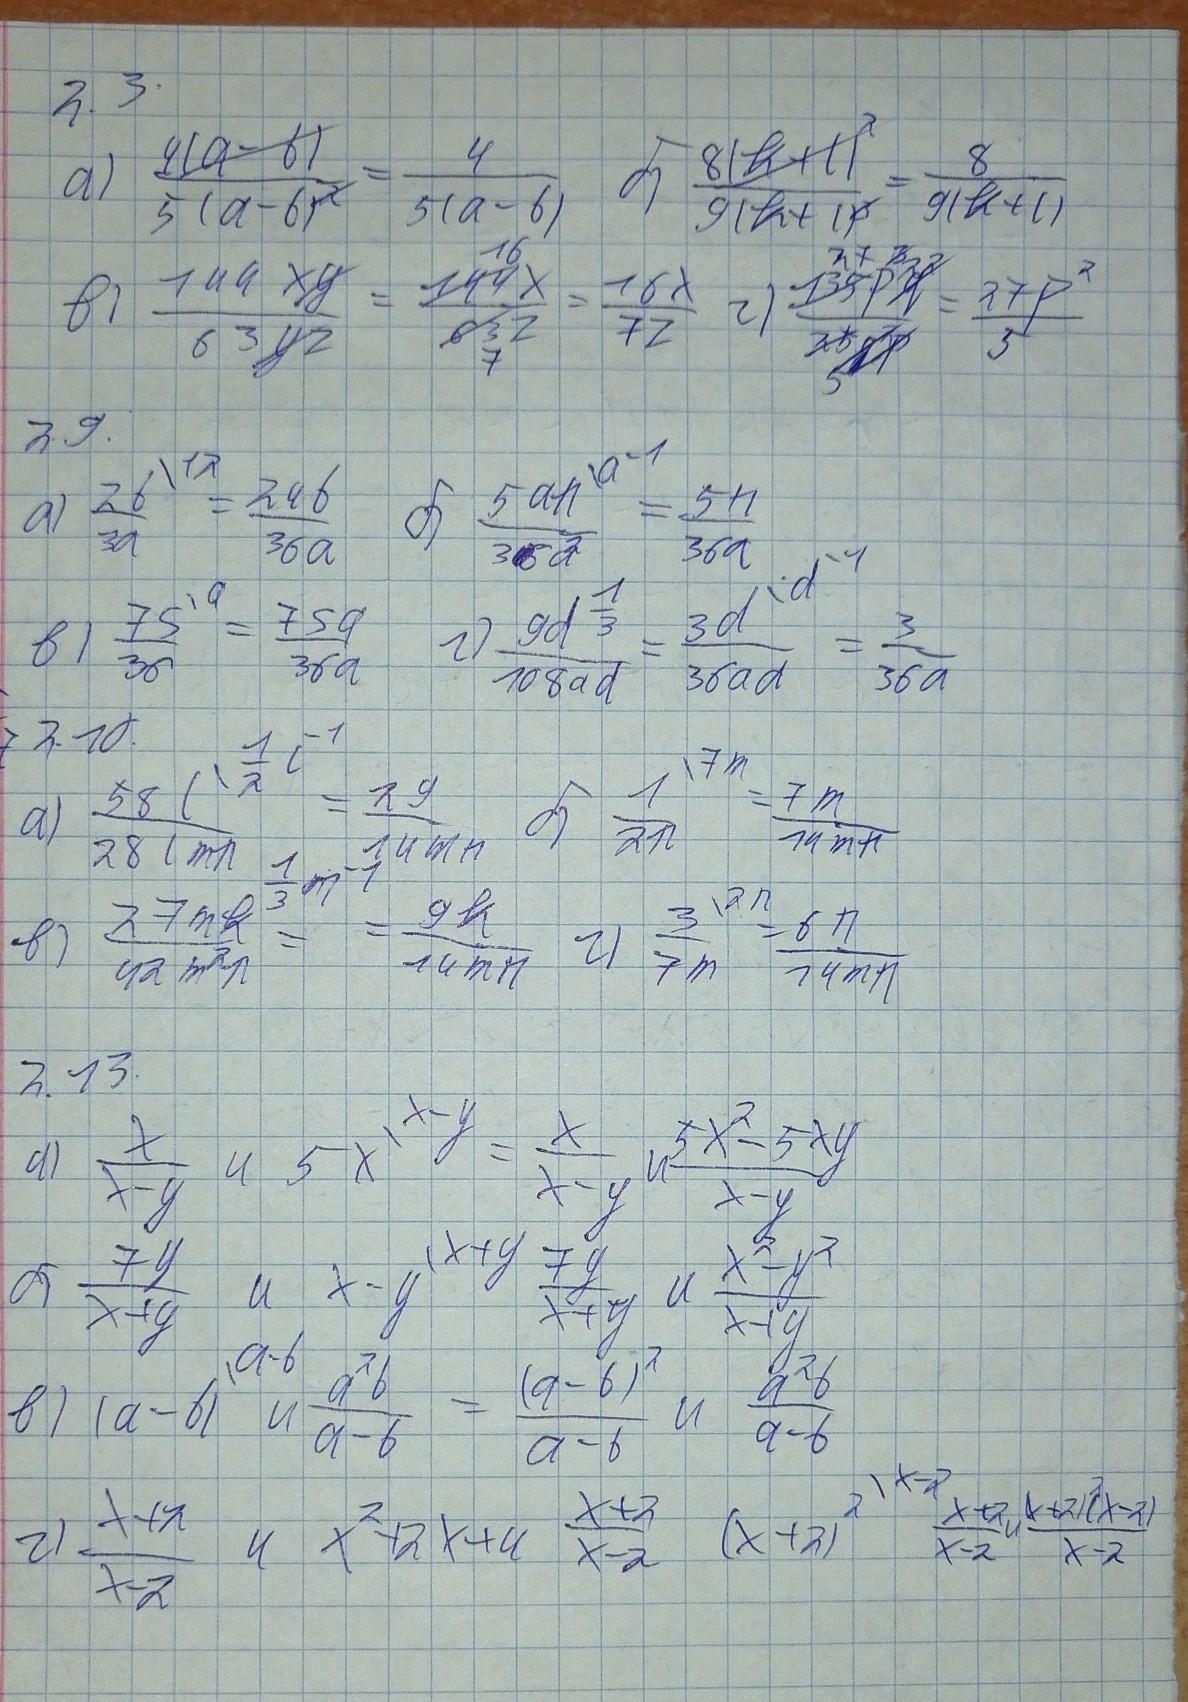 2.3.
а) 4(a-b)/5(a-b)² = 4/5(a-b) б) 8(k+l)²/9(k+l) = 8/9(k+l)
в) 144xy/63yz = 144x/63z = 16x/7z г) = 27p²/5
2.9.
а) 2b/3a \12 = 24b/36a б) 5an/36a² \a⁻¹ = 5n/36a
в) 75/36 \a = 75a/36a г) 9d/108ad 1/3 = 3d/36ad \d⁻¹ = 3/36a
2.10.
а) 58l/28lmn \1/2 l⁻¹ = 29/14mn б) 1/2n \7m = 7m/14mn
в) 27mk/42m²n 1/3 m⁻¹ = = 9k/14mn г) 3/7m \2n = 6n/14mn
2.13.
а) x/x-y и 5x \x-y = x/x-y и 5x²-5xy/x-y
б) 7y/x+y и x-y \x+y 7y/x+y и x²-y²/x+y
в) (a-b) \a-b и a²b/a-b = (a-b)²/a-b и a²b/a-b
г) x+2/x-2 и x²+2x+4 x+2/x-2 (x+2)² \x-2 x+2/x-2 и (x+2)²(x-2)/x-2